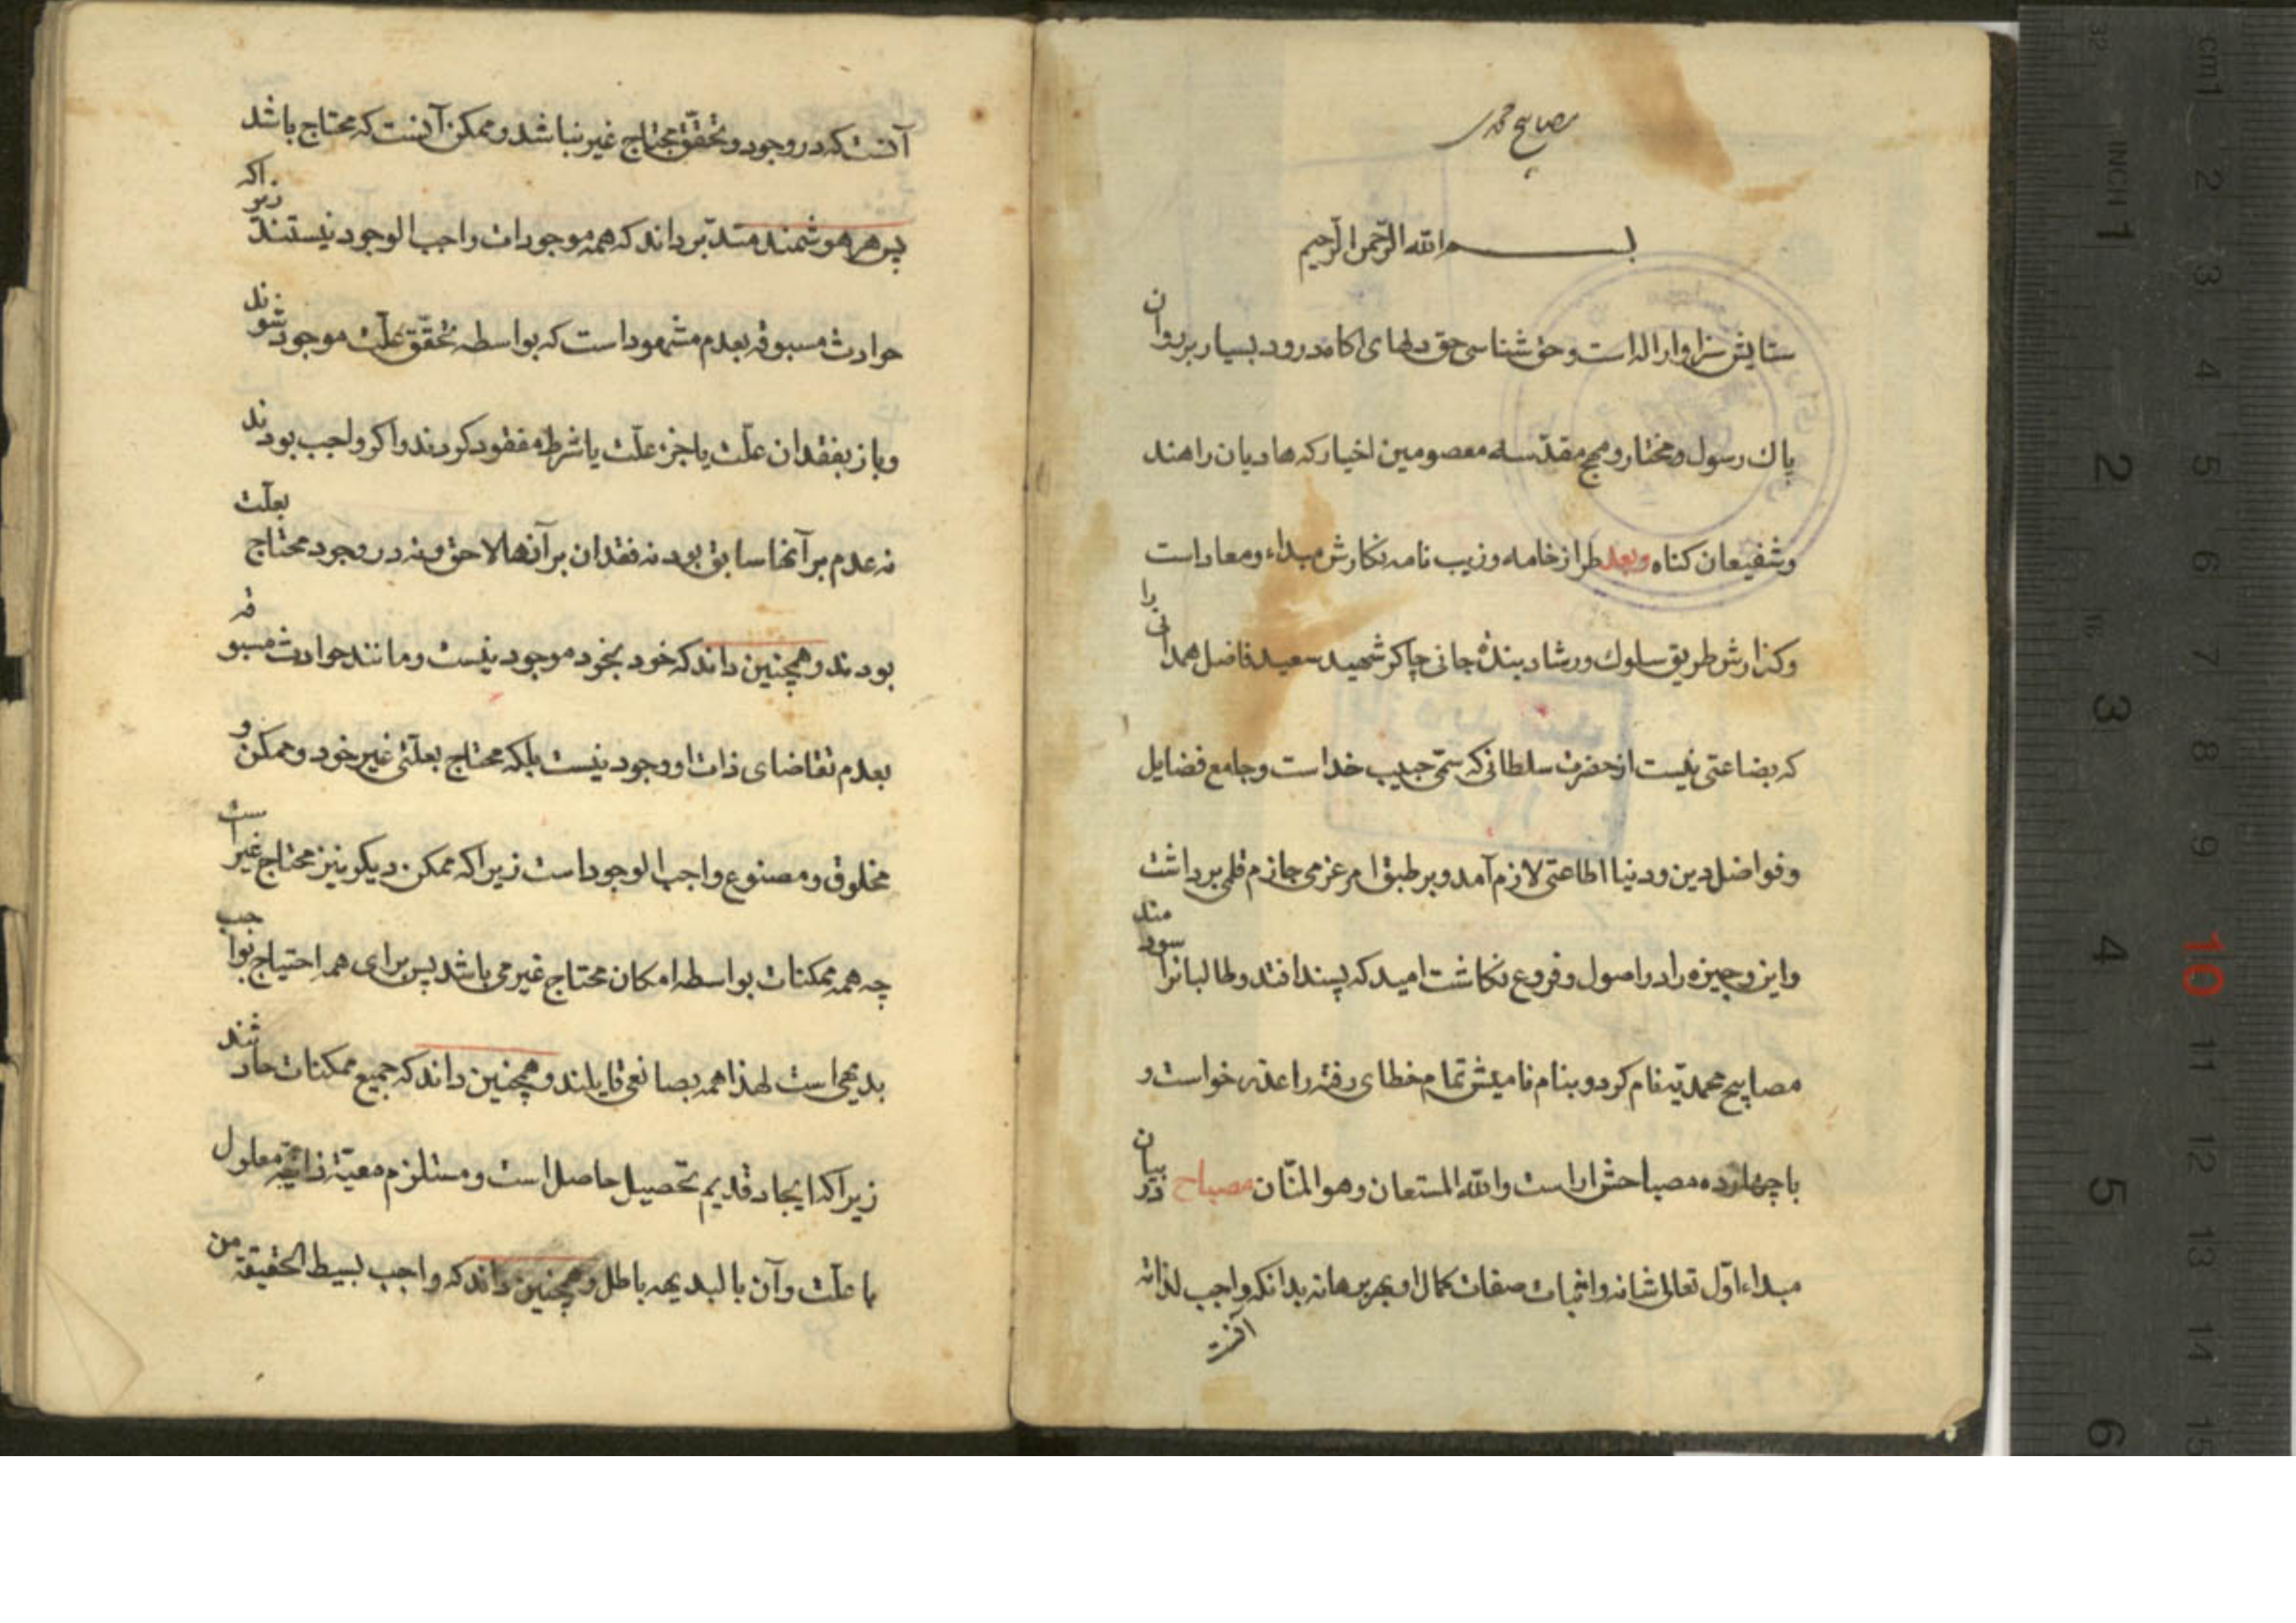 مصابیح محمدی
بسم الله الرحمن الرحیم
ستایش سزاوار اله است و حق شناسی حق دلهای آکاه درود بسیار بر روان
پاك رسول مختار و حجج مقدسه معصومین اخیار که هادیان راهند
و شفیعان کناه وبعد طراز خامه و زیب نامه نکارش مبداء و معاد است
و کذارش طریق سلوك و رشاد بنده جانی چاکر شهید سعید فاضل همدانی را
که بضاعتی نیست از حضرت سلطانی که سمّی حبیب خداست و جامع فضایل
و فواضل دین و دنیا اطاعتی لازم آمد و بر طبق امر عزمی جازم قلمی برداشت
و این وجیزه را در اصول و فروع نکاشت امید که پسند افتد و طالبانرا سودمند
مصابیح محمدیّه نام کرد و بنام نامیش تمام خطای رفته را عذر خواست و
با چهارده مصباحش اراست والله المستعان وهو المنّان مصباح در بیان
مبداء اوّل تعالی شانه و اثبات صفات کمال او بهر برهانه بدانکه واجب لذاته
آنست
آنست که در وجود و تحقّق محتاج غیر نباشد و ممکن آنست که محتاج باشد
پس هر هوشمند متدبّر داند که همه موجودات واجب الوجود نیستند زیراکه
حوادث مسبوقه بعدم مشهود است که بواسطه تحقّق علّت موجود شوند
و باز بفقدان علّت یا جزء علّت یا شرط مفقود کردند و اکر واجب بودند
نه عدم بر آنها سابق بود نه فقدان بر آنها لاحق و نه در وجود محتاج بعلّت
بودند و همچنین داند که خود بخود موجود نیست و مانند حوادث مسبوقه
بعدم تقاضای ذات او وجود نیست بلکه محتاج بعلّتی غیر خود و ممکن و
مخلوق و مصنوع واجب الوجود است زیراکه ممکن دیکر نیز محتاج غیر است
چه همه ممکنات بواسطه امکان محتاج غیر می باشد پس برای همه احتیاج بواجب
بدیهی است لهذا همه بصانعی قایلند و همچنین داند که جمیع ممکنات حادثند
زیراکه ایجاد قدیم تحصیل حاصل است و مستلزم معیّة ذاتیّه معلول
با علّت و آن بالبدیهه باطل و همچنین داند که واجب بسیط الحقیقة من